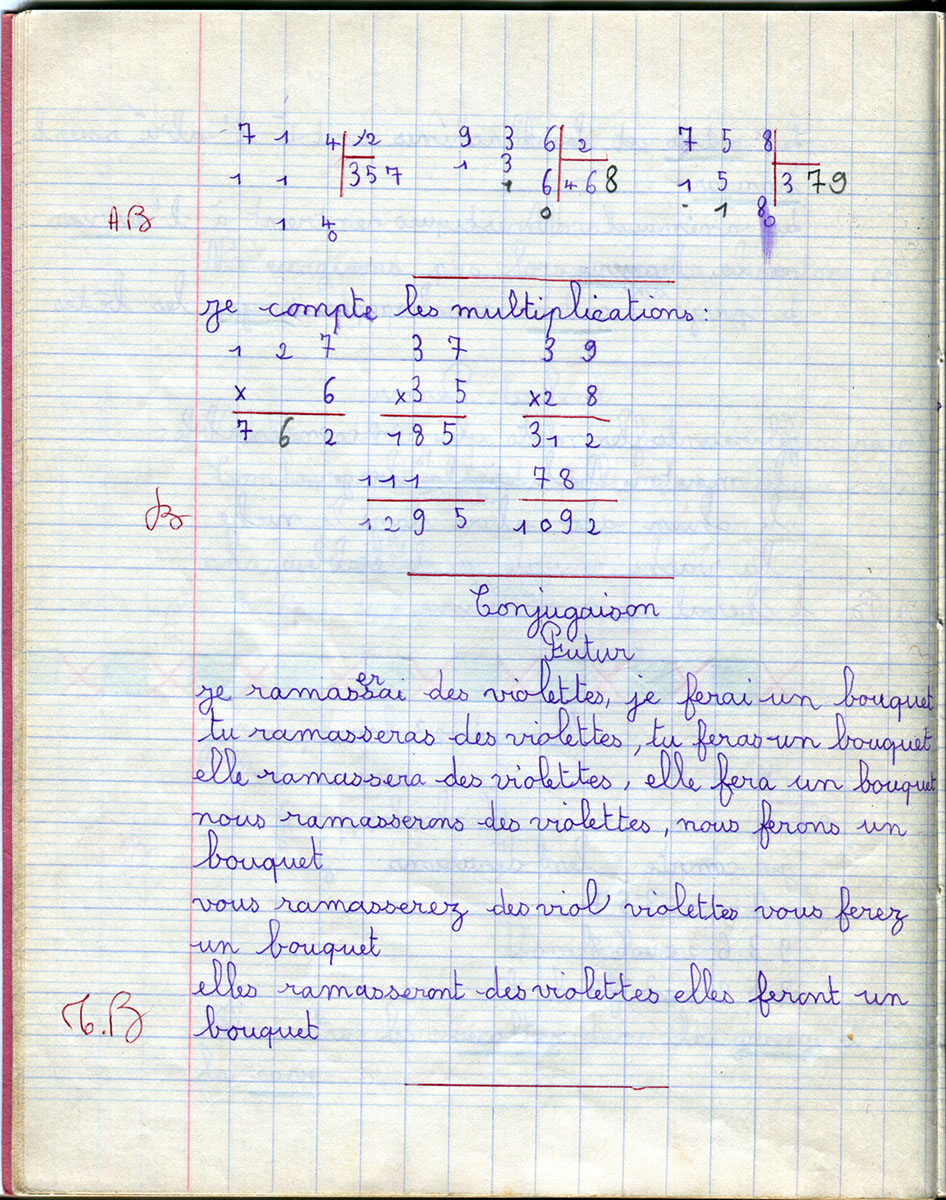 7 1 4 2 9 3 6 2 7 5 8
1 1 357 1 3 6 468 1 5 379
AB 1 4 0 1 8
0 0
je compte les multiplications:
1 2 7 3 7 3 9
x 6 x3 5 x2 8
7 6 2 185 312
111 78
B 1295 1092
Conjugaison
Futur
je ramasserai des violettes, je ferai un bouquet
tu ramasseras des violettes, tu feras un bouquet
elle ramassera des violettes, elle fera un bouquet
nous ramasserons des violettes, nous ferons un
bouquet
vous ramasserez des viol violettes vous ferez
un bouquet
elles ramasseront des violettes elles feront un
T.B bouquet